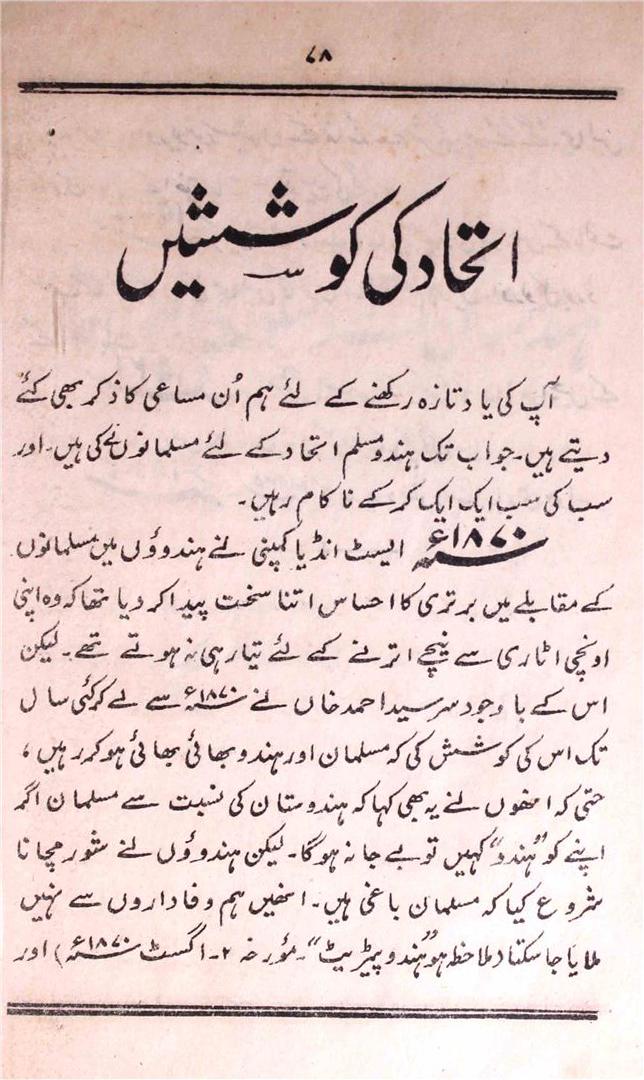 ۷۸
اتحاد کی کوششیں
آپ کی یاد تازہ رکھنے کے لئے ہم اُن مساعی کا ذکر بھی کئے
دیتے ہیں۔ جو اب تک ہندو مسلم اتحاد کے لئے مسلمانوں نے کی ہیں۔ اور
سب کی سب ایک ایک کر کے ناکام رہیں۔
سنہ ۱۸۷۰ء ایسٹ انڈیا کمپنی نے ہندوؤں میں مسلمانوں
کے مقابلے میں برتری کا احساس اتنا سخت پیدا کر دیا تھا کہ وہ اپنی
اونچی اٹاری سے نیچے اترنے کے لئے تیار ہی نہ ہوتے تھے۔ لیکن
اس کے باوجود سرسید احمد خاں نے سنہ ۱۸۷۰ء سے لے کر کئی سال
تک اس کی کوشش کی کہ مسلمان اور ہندو بھائی بھائی ہو کر رہیں،
حتیٰ کہ انھوں نے یہ بھی کہا کہ ہندوستان کی نسبت سے مسلمان اگر
اپنے کو "ہندو" کہیں تو بے جا نہ ہوگا۔ لیکن ہندوؤں نے شور مچانا
شروع کیا کہ مسلمان باغی ہیں۔ انھیں ہم وفاداروں سے نہیں
ملایا جا سکتا (ملاحظہ ہو "ہندو پیٹریٹ"۔ مؤرخہ ۲۔ اگسٹ سنہ ۱۸۷۰ء) اور